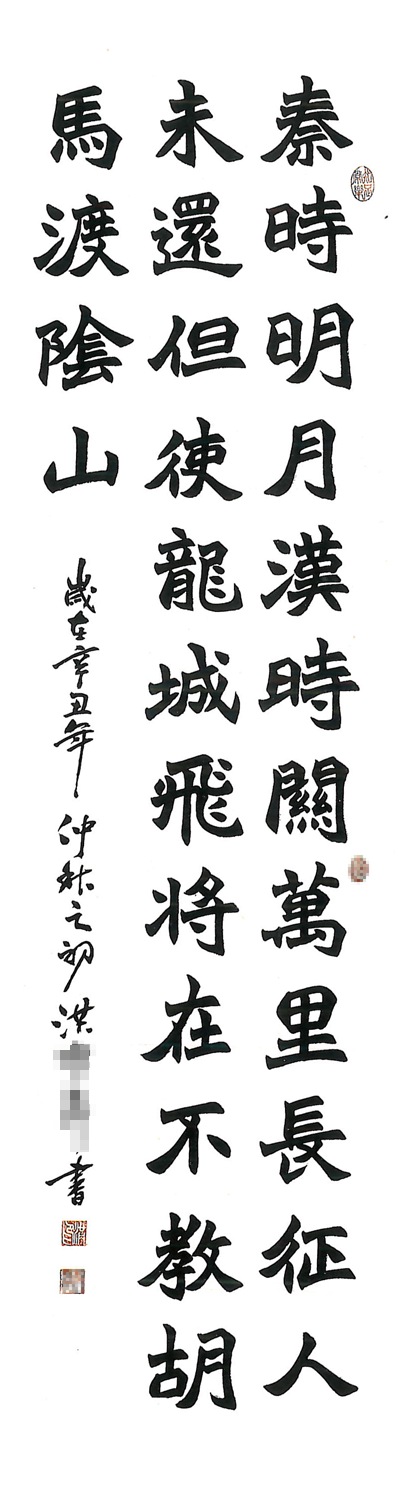 秦時明月漢時關萬里長征人
未還但使龍城飛將在不教胡
馬渡陰山
歲在辛丑年仲秋之初洪
書